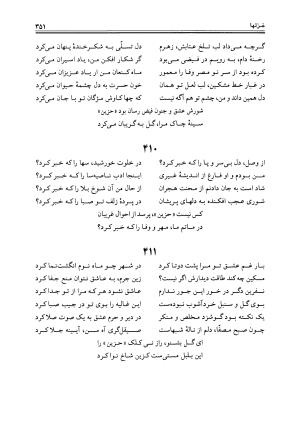 غزلها ۳۵۱
گرچه می‌داد لب تلخ عتابش، زهرم دل تسلّی به شکرخندهٔ پنهان می‌کرد
رخنهٔ دام، به رویم در فیضی بود گر شکار افکن من، یاد اسیران می‌کرد
بعد از سر تو مصر وفا را معمور ماه کنعان من ار یاد عزیزان می‌کرد
در غبار خط مشکین، لب جان بخش تو دید دعوی خضر به جان چشمهٔ حیوان می‌کرد
دل همین داند و من، چشم تو هم آگه نیست که چها کاوش مژگان تو با جان می‌کرد
شورش عشق و جنون فیض رسان بود «حزین»
سینهٔ چاک مرا، گل به گریبان می‌کرد
۴۱۰
از وصل، دل بی‌سر و پا را که خبر کرد؟ در خلوت خورشید، سها را که خبر کرد؟
من بودم و او فارغ از اندیشهٔ غیری اینجا ادب ناصیه‌سا را که خبر کرد؟
شاد است به جان دادنم از محنت هجران از حال من آن شوخ بلا را که خبر کرد؟
شوری عجب افکنده به دلهای پریشان در پردهٔ زلف تو صبا را که خبر کرد؟
کس نیست «حزین» پرسد از احوال غریبان
در ماتم ما، مهر و وفا را که خبر کرد؟
۴۱۱
بار غم عشق تو مرا پشت دوتا کرد در شهر چو ماه نوم انگشت‌نما کرد
مسکین چه کند طاقت دیدارش اگر نیست زین جرم، به عاشق نتوان جور و جفا کرد
نفرین دگر در خور این هجر ندارم عاشق نشود هر که مرا از تو جدا کرد
بوی گل و سنبل خردآشوب نبوده‌ست این غالیه را بوی تو در جیب صبا کرد
یک نکته بود گوشزد مخلص و منکر در دیر و حرم عشق به یک صوت صلا کرد
چون صبح مصفّا، دلم از نالهٔ شبهاست صیقل‌گری آه من، آیینه جلا کرد
ای گل بشنو، راز نی کلک «حزین» را
این بلبل مستی‌ست کزین شاخ نوا کرد